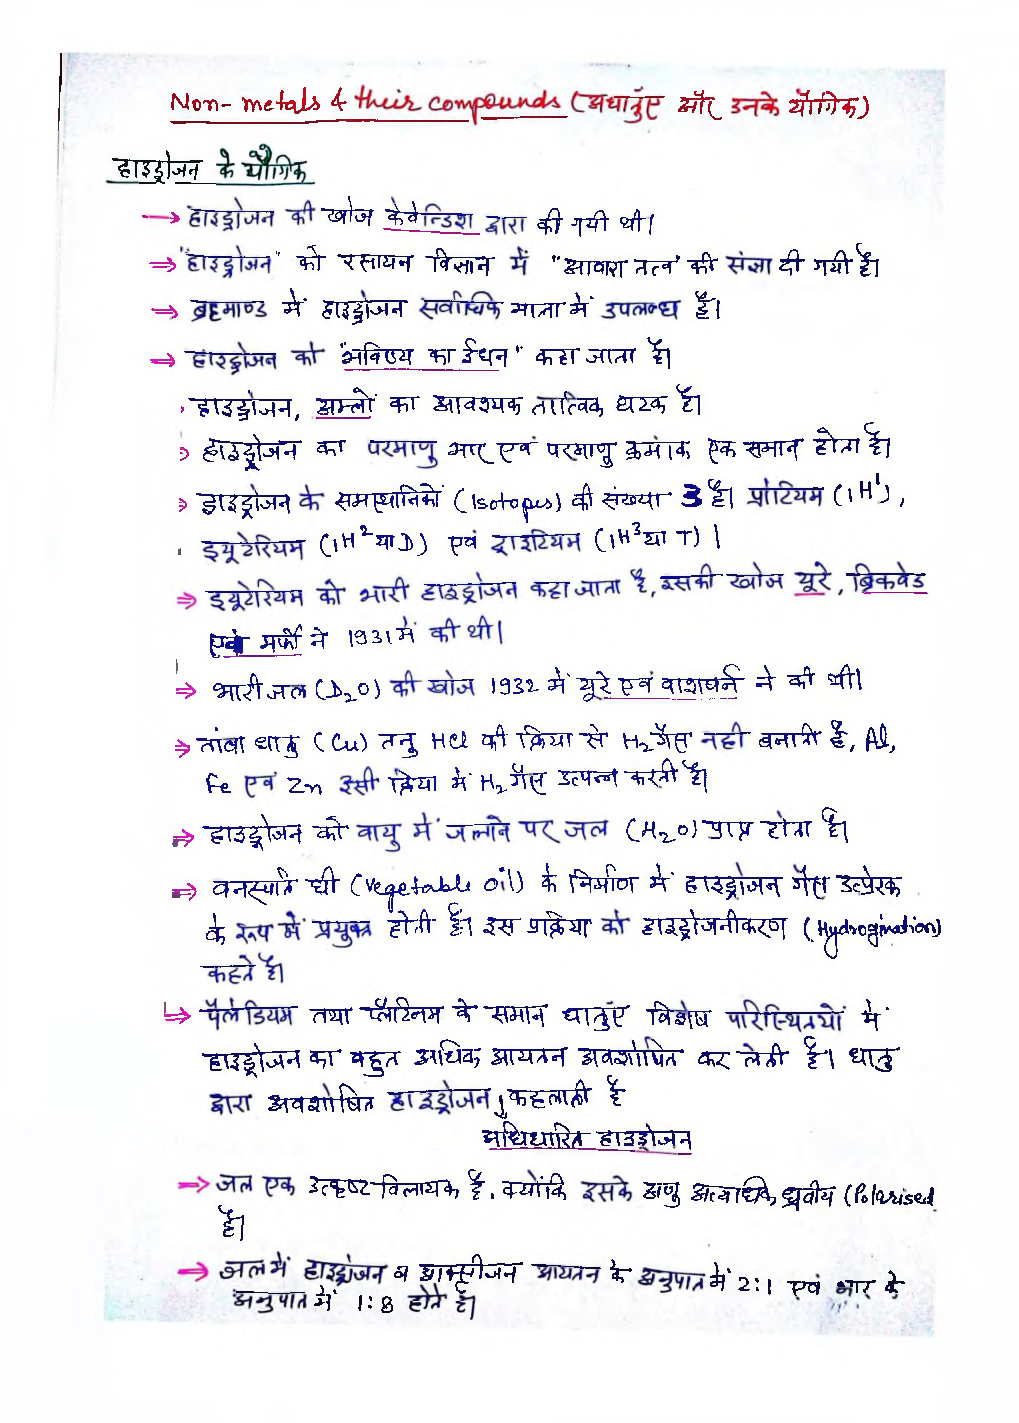 Non-metals & their compounds (अधातुएँ और उनके यौगिक)
हाइड्रोजन के यौगिक
→ हाइड्रोजन की खोज केवेन्डिश द्वारा की गयी थी।
⇒ "हाइड्रोजन" को रसायन विज्ञान में "आवारा तत्व" की संज्ञा दी गयी है।
⇒ ब्रह्माण्ड में हाइड्रोजन सर्वाधिक मात्रा में उपलब्ध है।
⇒ हाइड्रोजन को "भविष्य का ईंधन" कहा जाता है।
हाइड्रोजन, अम्लों का आवश्यक तात्विक घटक है।
हाइड्रोजन का परमाणु भार एवं परमाणु क्रमांक एक समान होता है।
हाइड्रोजन के समस्थानिकों (Isotopes) की संख्या 3 है। प्रोटियम (1H¹),
ड्यूटेरियम (1H² या D) एवं ट्राइटियम (1H³ या T) |
⇒ ड्यूटेरियम को भारी हाइड्रोजन कहा जाता है, इसकी खोज यूरे, ब्रिकवेड
एवं मर्फी ने 1931 में की थी।
⇒ भारी जल (D₂O) की खोज 1932 में यूरे एवं वाशबर्न ने की थी।
⇒ तांबा धातु (Cu) तनु HCl की क्रिया से H₂ गैस नही बनाती है, Al,
Fe एवं Zn इसी क्रिया में H₂ गैस उत्पन्न करती है।
⇒ हाइड्रोजन को वायु में जलाने पर जल (H₂O) प्राप्त होता है।
⇒ वनस्पति घी (Vegetable oil) के निर्माण में हाइड्रोजन गैस उत्प्रेरक
के रूप में प्रयुक्त होती है। इस प्रक्रिया को हाइड्रोजनीकरण (Hydrogination)
कहते है।
↳ पैलेडियम तथा प्लैटिनम के समान धातुएँ विशेष परिस्थितयों में
हाइड्रोजन का बहुत अधिक आयतन अवशोषित कर लेती है। धातु
द्वारा अवशोषित हाइड्रोजन, कहलाती है
अधिधारित हाइड्रोजन
⇒ जल एक उत्कृष्ट विलायक है, क्योंकि इसके अणु अत्याधिक ध्रुवीय (Polarised
है।
⇒ जल में हाइड्रोजन व आक्सीजन आयतन के अनुपात में 2:1 एवं भार के
अनुपात में 1:8 होते है।